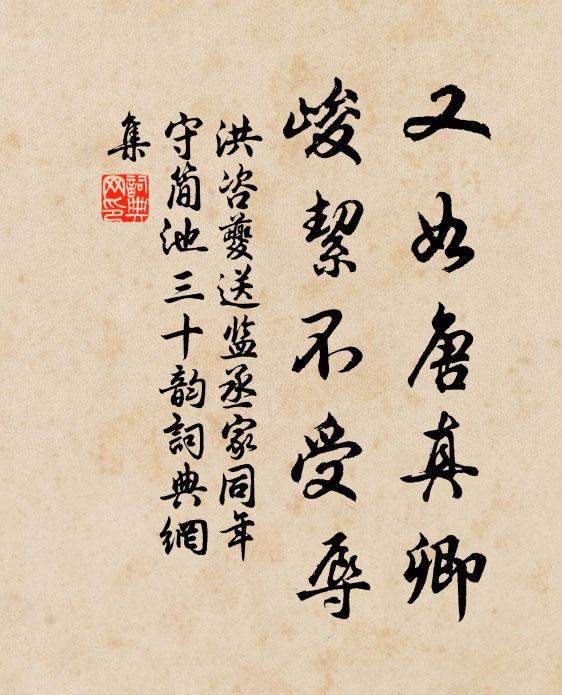 又如唐真卿
峻絜不受辱
洪咨夔送监丞家同年
守简池三十韵詞典網
集
詞典
网印